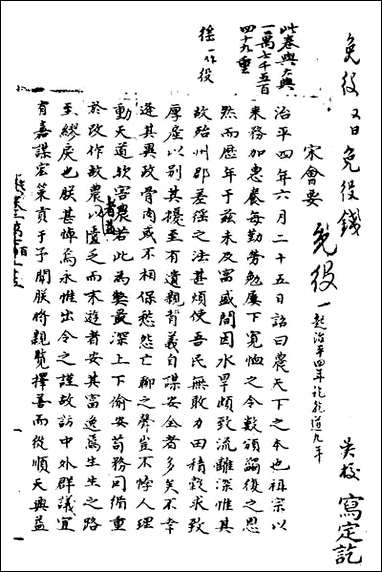 免役 又曰免役錢
吴校 寫定訖
宋會要
免役 一 起治平四年訖乾道九年
此卷與大典
一萬七千五百
四十九重
徐一作役
治平四年六月二十五日詔曰農天下之本也祖宗以
來務加惠養每勤勞勉屢下寬恤之令數頒蠲復之恩
然而歷年于茲未及富盛間因水旱頗致流離深惟其
故殆州郡差徭之法甚煩使吾民無敢力田積穀求致
厚產以別其擾至有遺親背義自謀安全者多矣不幸
逢其異政骨肉或不相保愁怨亡聊之聲豈不悖人理
動天道歟害農若此為弊最深上下偷安苟務因循重
於改作故農以乏而末遊者安其富逸為生生之路
至繆戾也朕甚悼焉永惟出令之謹故訪中外群議宜
有嘉謀宏策貢于予聞朕將親覽擇善而從順天興益